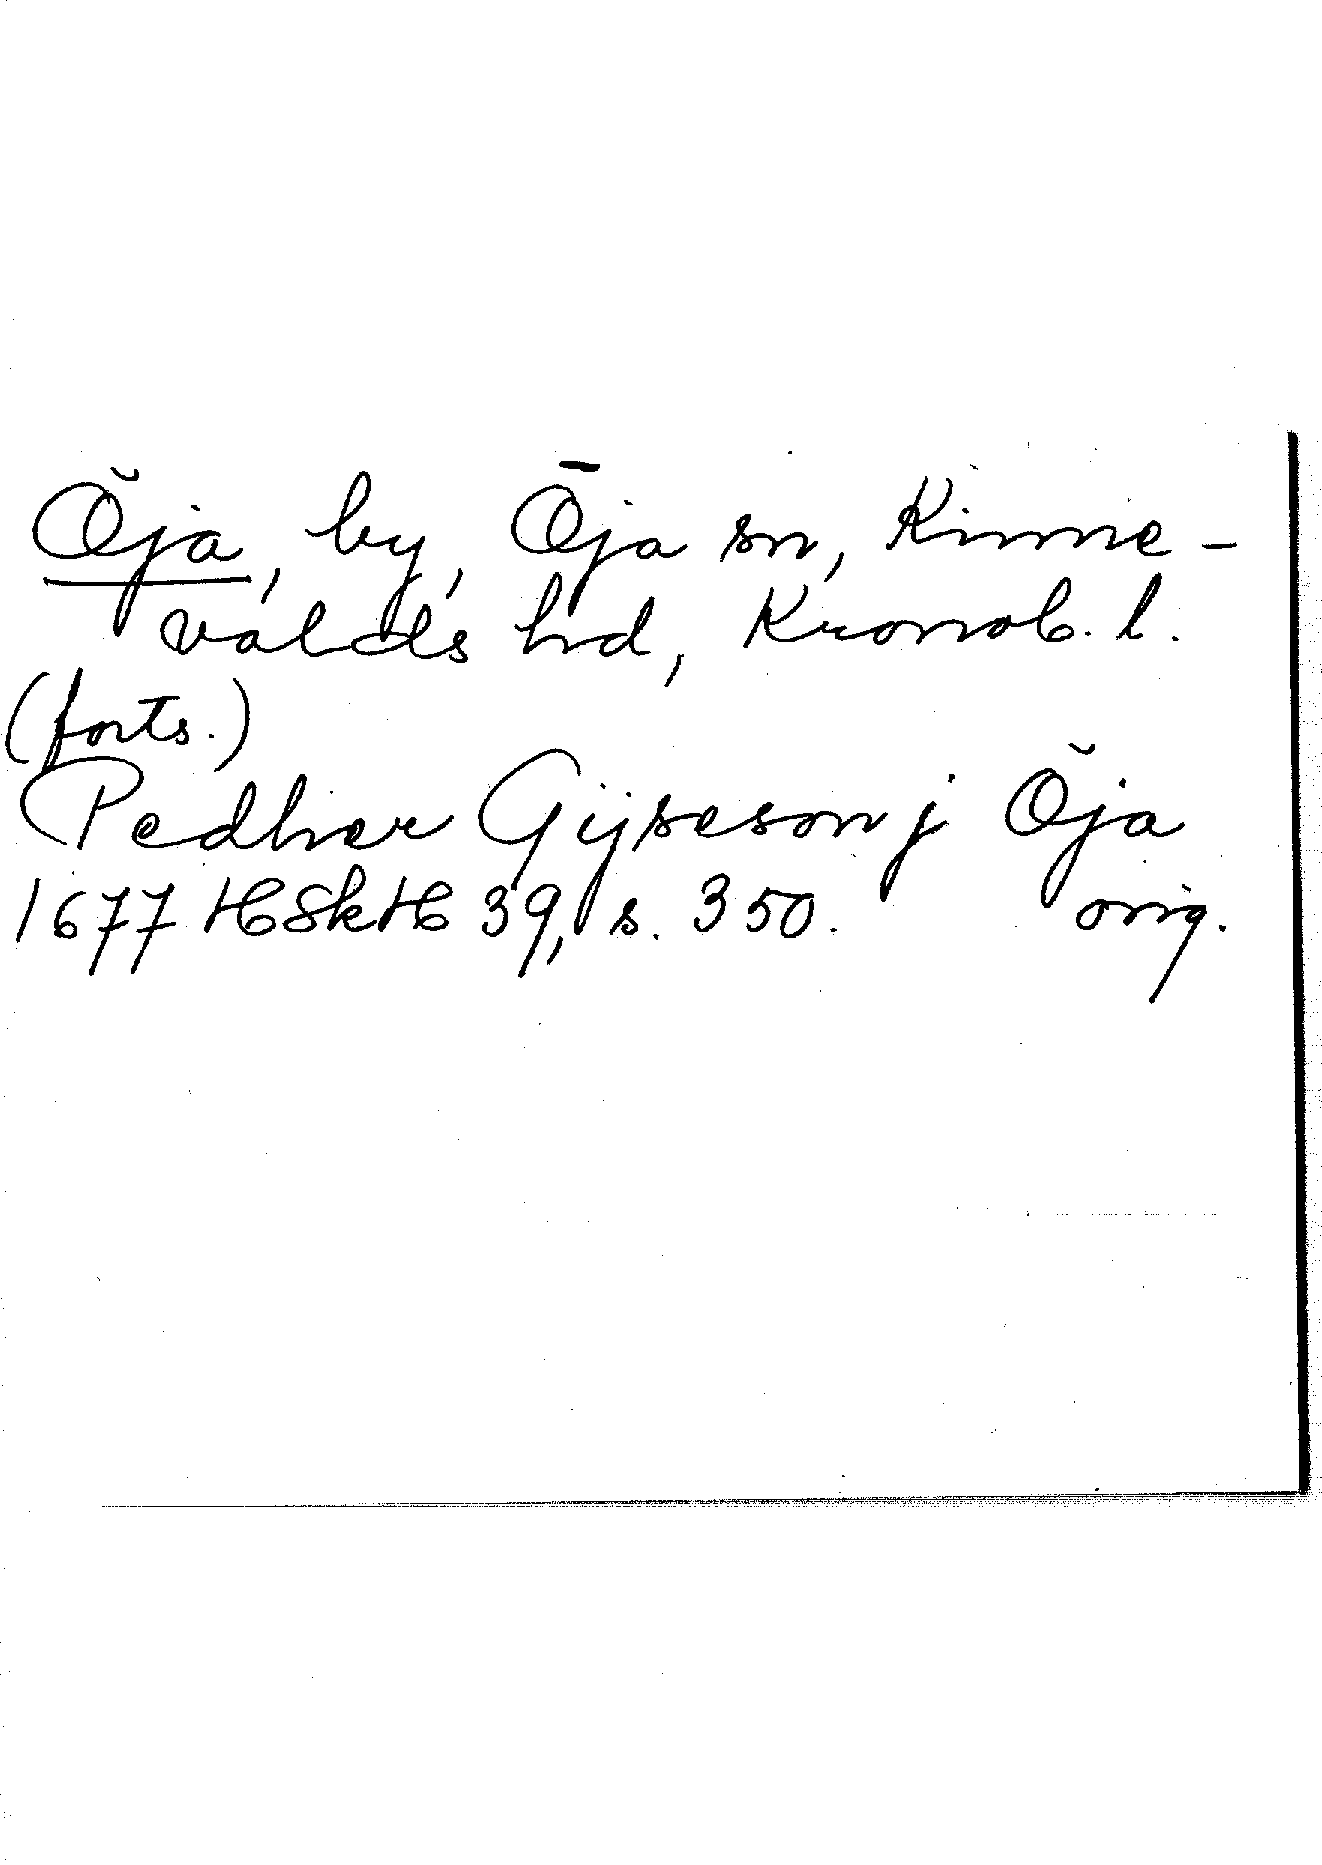 Öja, by, Öja sn, Kinne-
valds hd, Kronob. l.
(forts.)
Pedher Gijseson j Öja
1677 HSkH 39, s. 350. orig.